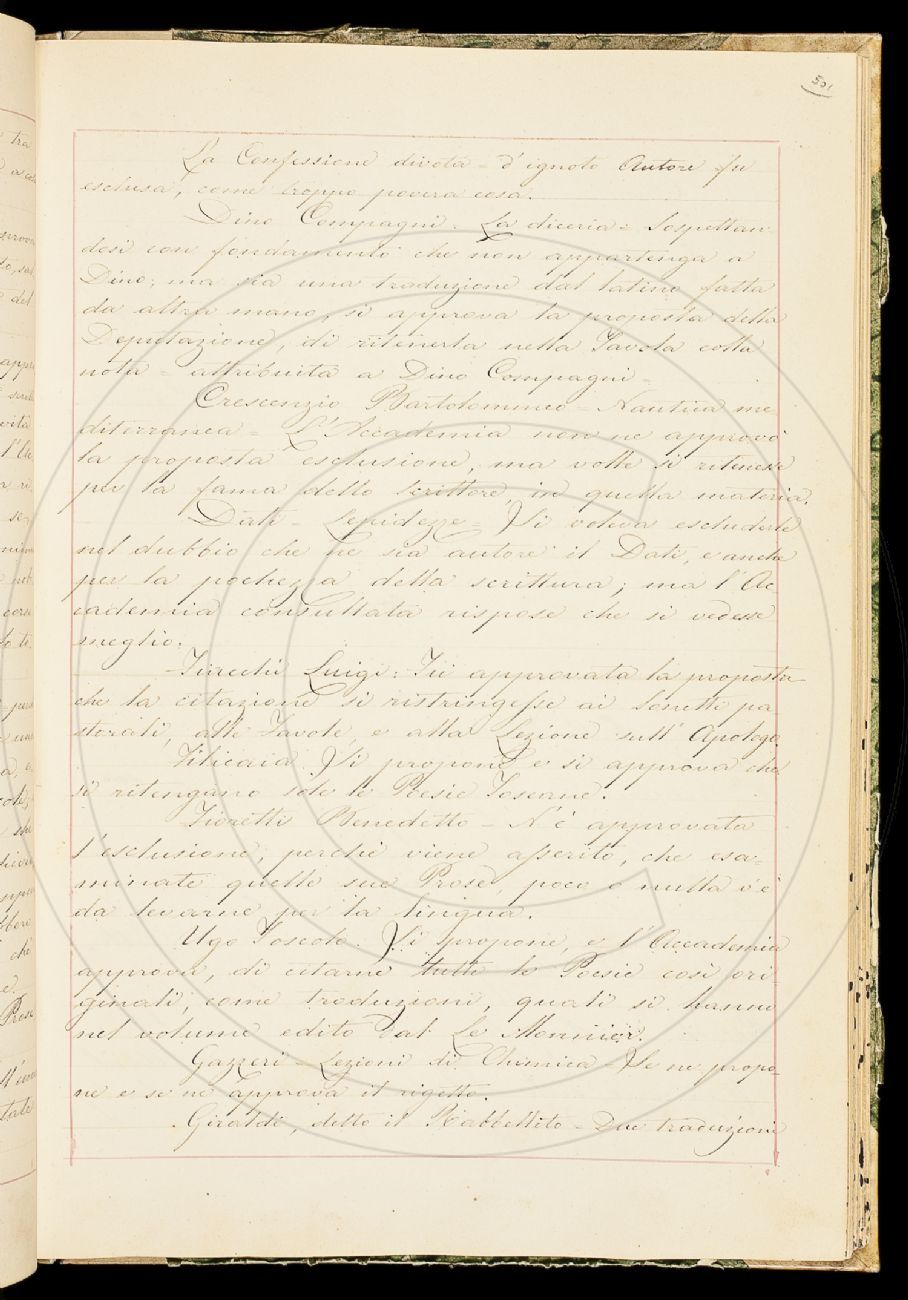 501
La Confessione divota = d'ignoto Autore fu
esclusa, come troppo povera cosa.
Dino Compagni. La diceria = Sospettan
dosi con fondamento che non appartenga a
Dino; ma sia una traduzione dal latino fatta
da altra mano, si approva la proposta della
Deputazione, di ritenerla nella Tavola colla
nota = attribuita a Dino Compagni =
Crescenzio Bartolommeo = Nautica me
diterranea = L'Accademia non ne approvò
la proposta esclusione, ma volle si ritenesse
per la fama dello scrittore, in quella materia.
Dati = Lepidezze = Si voleva escluderle
nel dubbio che ne sia autore il Dati, e anche
per la pochezza della scrittura; ma l'Ac
cademia consultata rispose che si vedesse
meglio.
Fiacchi Luigi: Fu approvata la proposta
che la citazione si ristringesse ai Sonetti pa
storali, alle Favole, e alla Lezione sull'Apologo
Filicaia. Si propone e si approva che
si ritengano sole le Poesie Toscane.
Fioretti Benedetto = N'è approvata
l'esclusione, perchè viene asserito, che esa=
minate quelle sue Prose, poco o nulla v'è
da levarne per la lingua.
Ugo Foscolo. Si propone, e l'Accademia
approva, di citarne tutte le Poesie così ori
ginali, come traduzioni, quali si hanno
nel volume edito dal Le Monnier.
Gazzeri = Lezioni di Chimica = Se ne propo=
ne e se ne approva il rigetto.
Giraldi, detto il Rabbellito = Due traduzioni